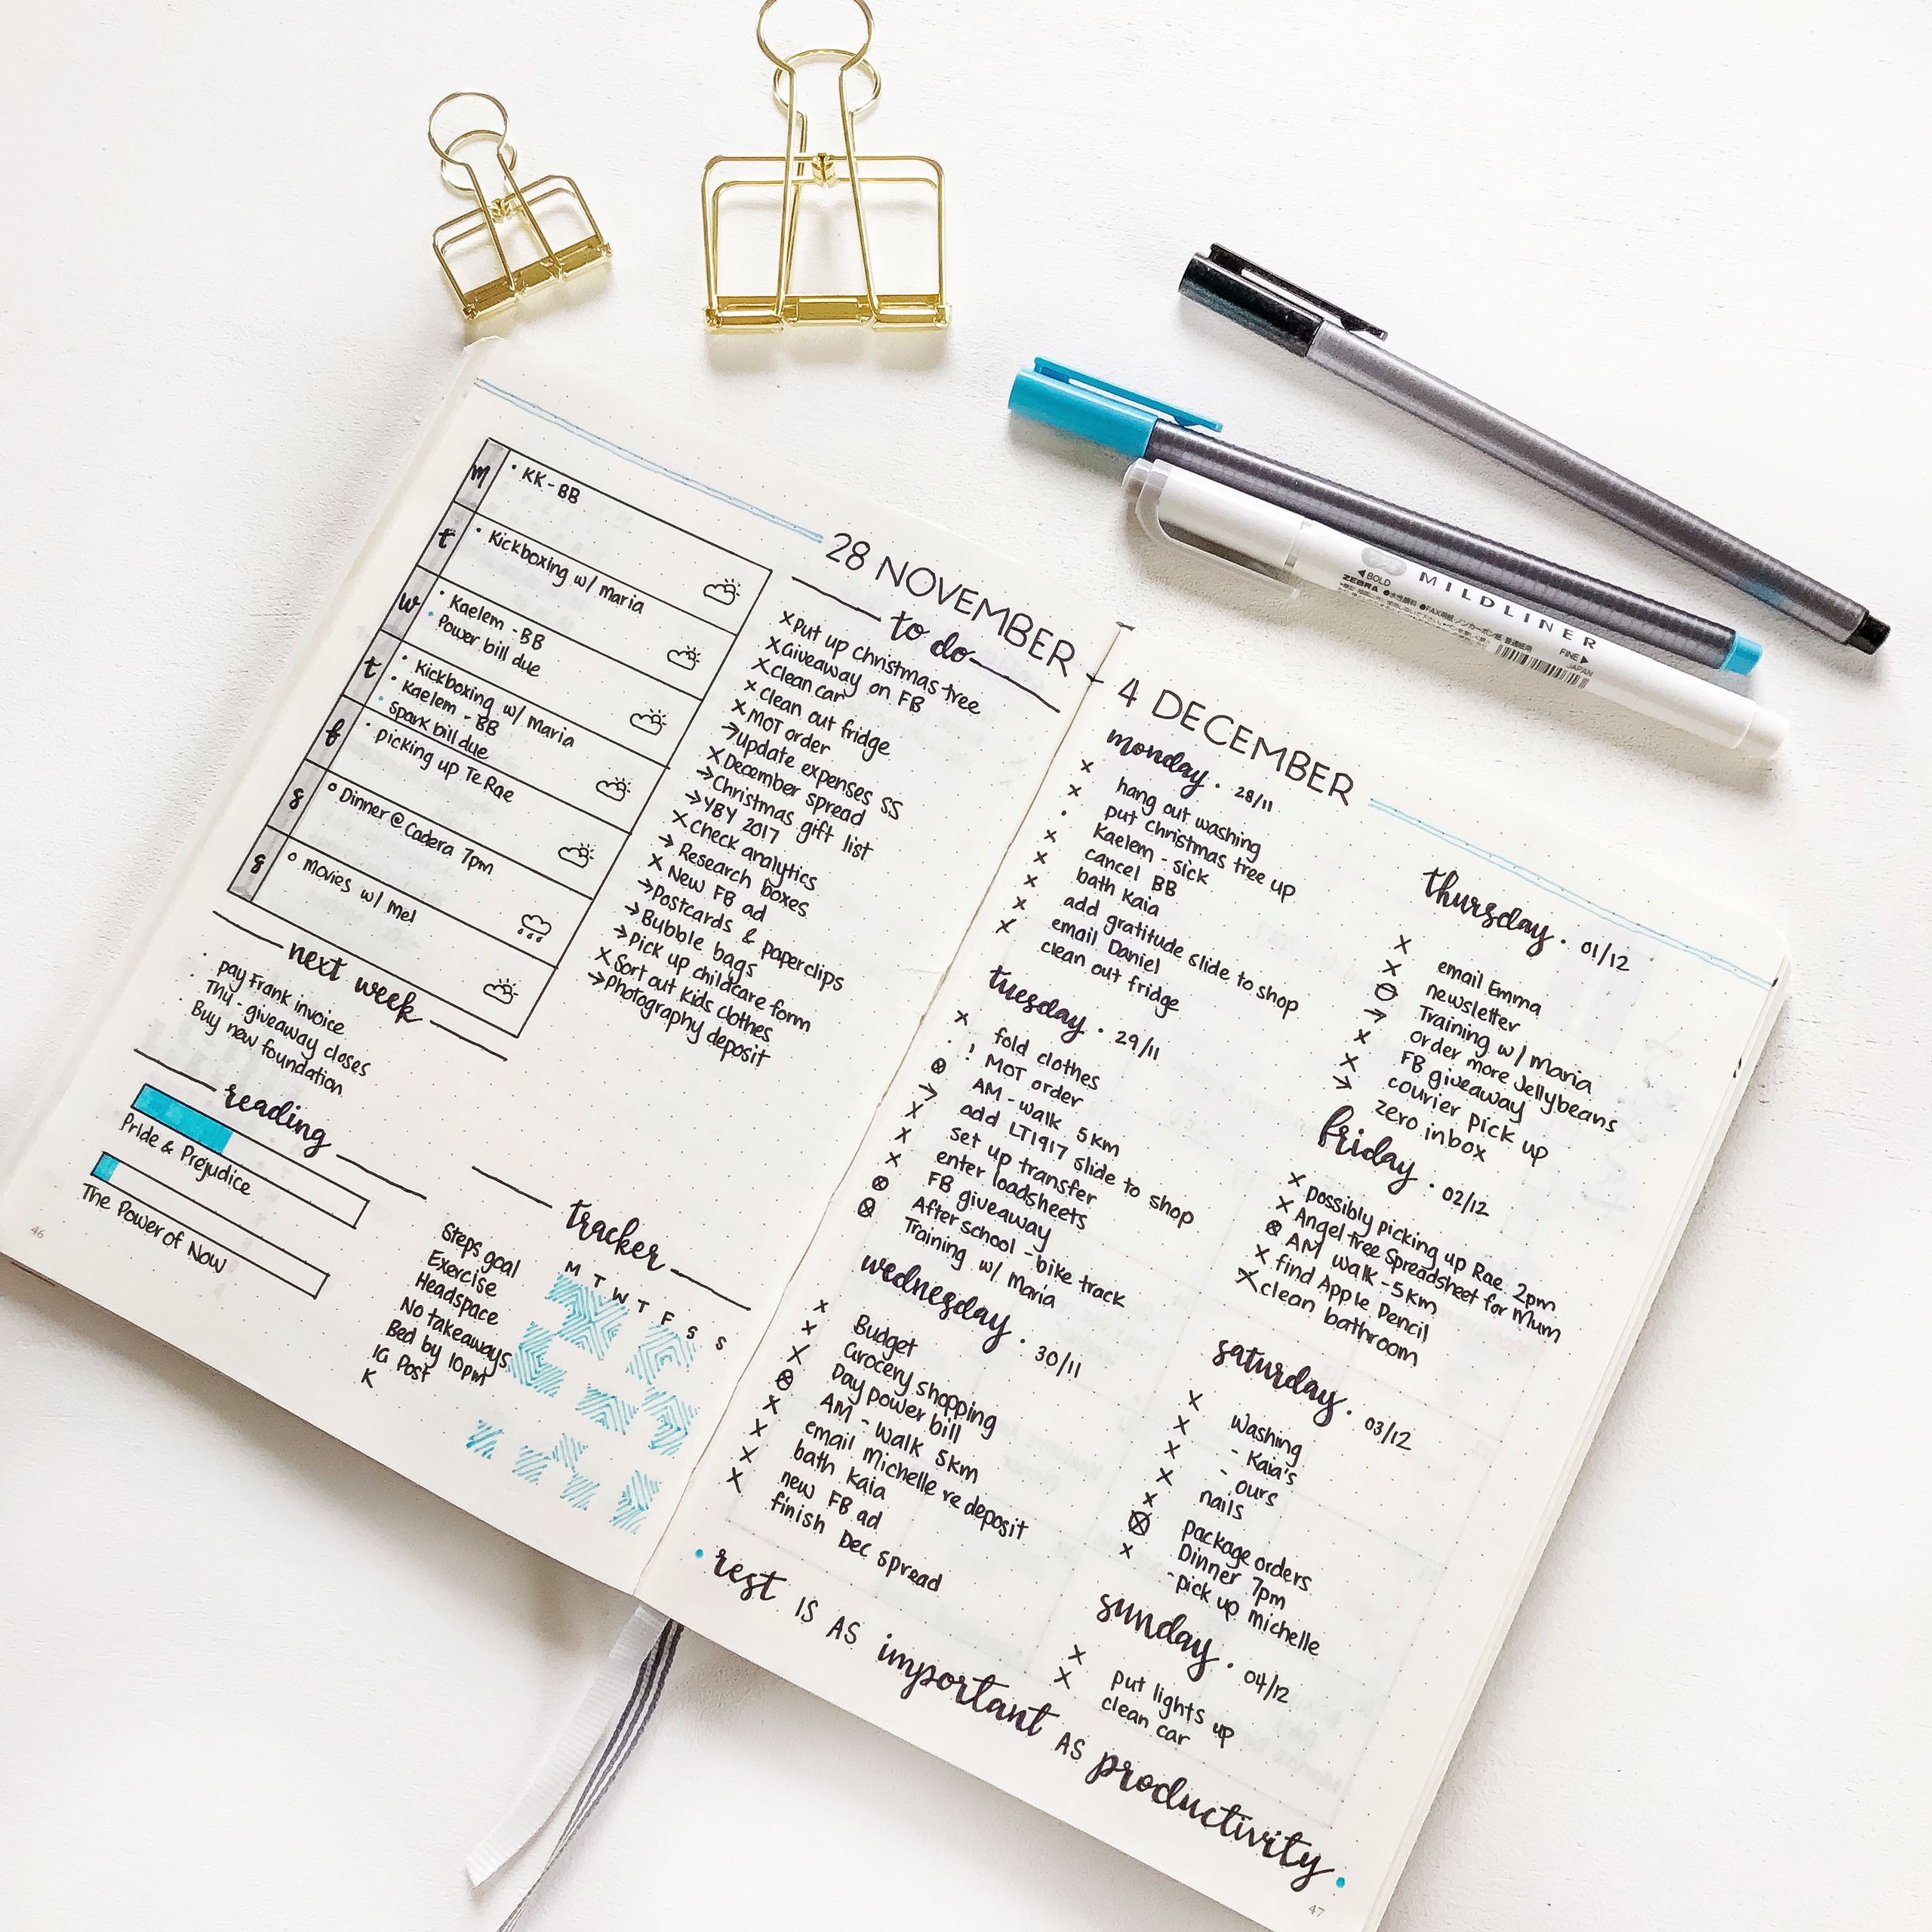 28 NOVEMBER -
m
• KK - BB
t
• Kickboxing w/ Maria
w
• Kaelem - BB
• Power bill due
t
• Kickboxing w/ Maria
• Kaelem - BB
• Spark bill due
f
• picking up Te Rae
s
o Dinner @ Cadera 7pm
s
o movies w/ Mel
next week
• pay Frank invoice
• Thu - giveaway closes
• Buy new foundation
reading
Pride & Prejudice
The Power of Now
46
to do
x Put up christmas tree
x Giveaway on FB
x Clean car
x Clean out fridge
x MOT order
→ Update expenses SS
x December spread
→ Christmas gift list
→ YBY 2017
x Check analytics
→ Research boxes
x New FB ad
→ Postcards & paperclips
→ Bubble bags
→ Pick up childcare form
x Sort out kids clothes
→ Photography deposit
tracker
M T W T F S S
Steps goal
Exercise
Headspace
No takeaways
Bed by 10pm
IG Post
K
4 DECEMBER
monday • 28/11
x hang out washing
x put christmas tree up
• Kaelem - sick
x cancel BB
x bath Kaia
x add gratitude slide to shop
x email Daniel
x clean out fridge
tuesday • 29/11
x fold clothes
• ! MOT order
⊗ AM - walk 5km
→ add LT1917 slide to shop
x set up transfer
x enter loadsheets
x FB giveaway
⊗ After school - bike track
⊗ Training w/ Maria
wednesday • 30/11
x Budget
x Grocery shopping
x Pay power bill
⊗ AM - walk 5km
x email Michelle re deposit
x bath Kaia
x new FB ad
x finish Dec spread
thursday • 01/12
x email Emma
x newsletter
⊖ Training w/ Maria
→ order more Jellybeans
x FB giveaway
x courier pick up
→ zero inbox
friday • 02/12
x possibly picking up Rae 2pm
x Angel tree spreadsheet for Mum
⊗ AM walk - 5km
x find Apple Pencil
x clean bathroom
saturday • 03/12
x Washing
x - Kaia's
x - ours
x nails
x package orders
⊗ Dinner 7pm
x - pick up Michelle
sunday • 04/12
x put lights up
x clean car
• rest IS AS important AS productivity •
47
◄BOLD
ZEBRA
MILDLINER
FINE►
JAPAN